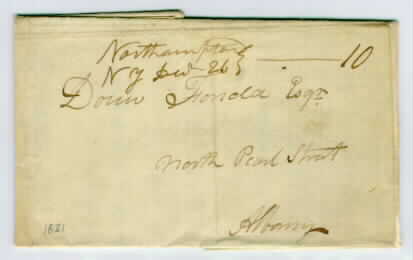 Northampton 10
NY Dec 26
Douw Fonda Esqr
North Pearl Street
Albany
1821